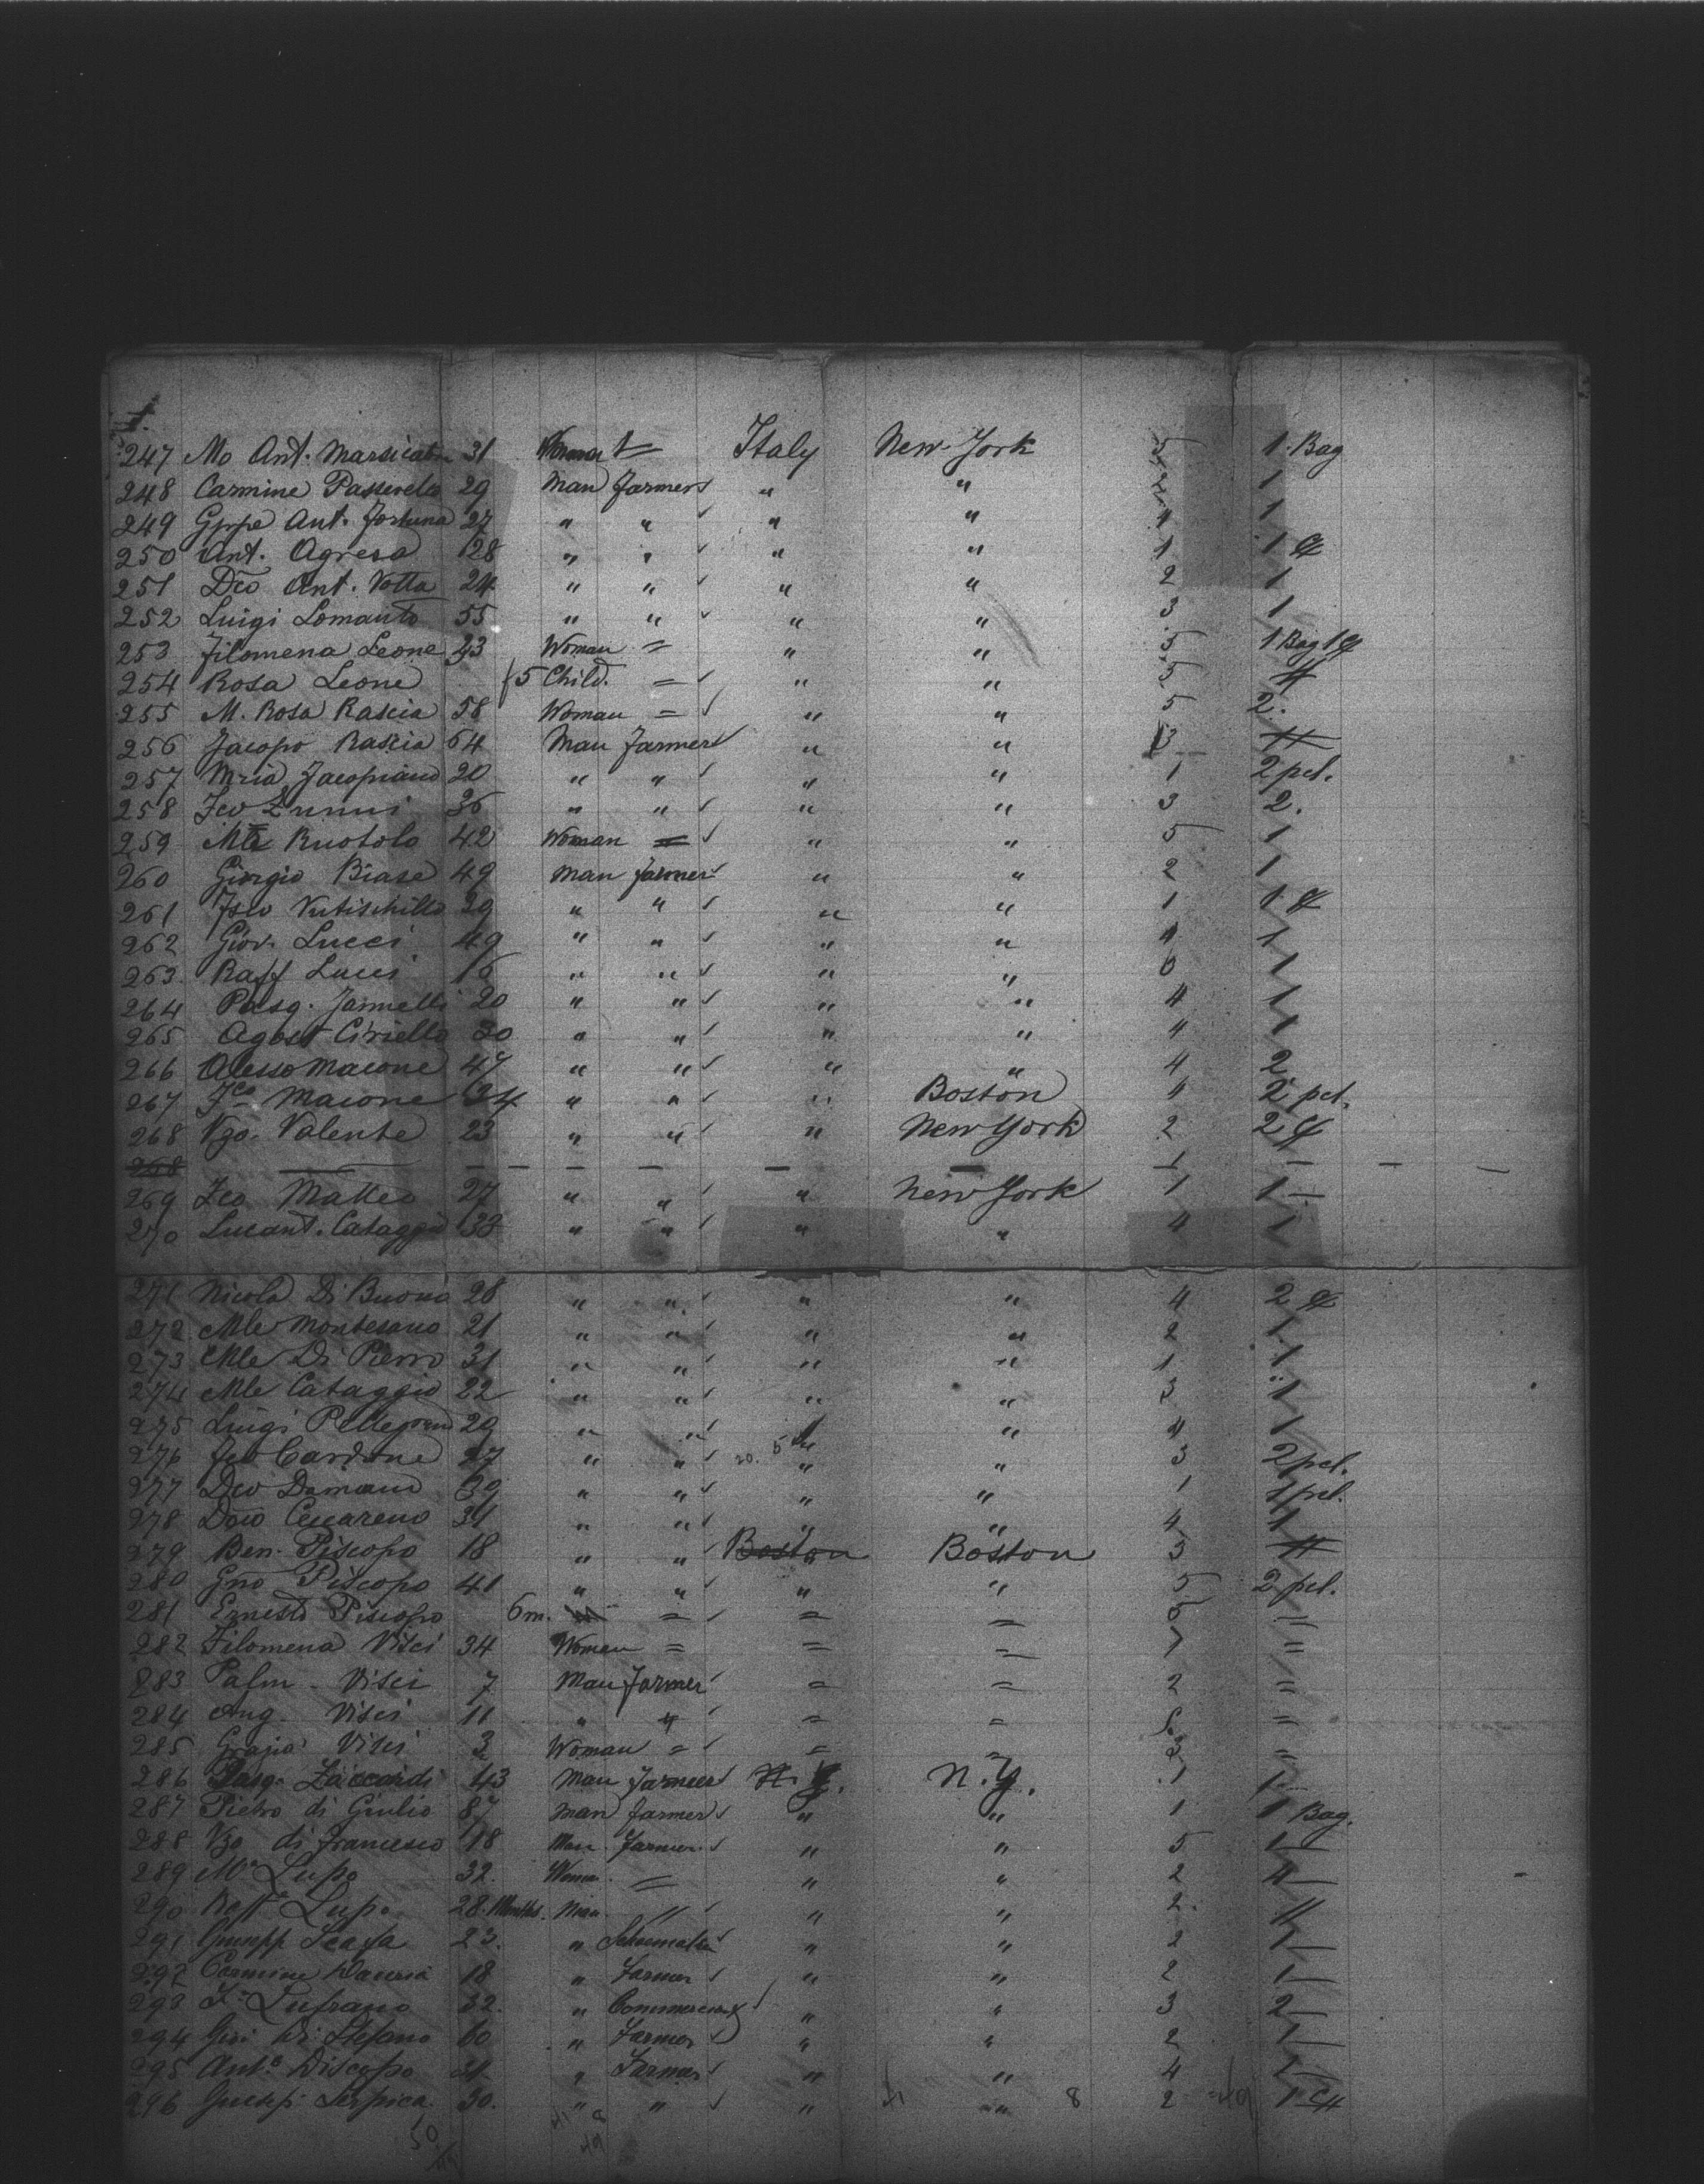 247 Mo Ant. Marsicato 31 Woman = Italy New-York 5 1 Bag
248 Carmine Passerella 29 Man Farmer " " 1
249 Gppe Ant. Fortuna 27 " " " " 4 1
250 Ant. Agresa 28 " " " " 1 1
251 Dco Ant. Votta 24 " " " " 2 1
252 Luigi Lomauto 55 " " " " 3 1
253 Filomena Leone 23 Woman = " " 5 1 Bag 1
254 Rosa Leone 5 Child. = " " 5 "
255 M. Rosa Rascia 58 Woman = " " 5 2.
256 Jacopo Rascia 64 Man Farmer " " 3
257 Mria Jacopiano 20 " " " " 1 2 pcl.
258 Fco Zunni 36 " " " " 3 2.
259 Mle Ruotolo 42 Woman = " " 5 1
260 Giorgio Biase 49 Man farmer " " 2 1
261 29 " " " " 1 1
262 Giov. Lucci 49 " " " " 4 1
263 Raff Lucci 16 " " " " 6 1
264 Pasq. Jannelli 20 " " " " 4 1
265 Agost Ciriello 30 " " " " 4 1
266 Alesso Maione 47 " " " " 4 2
267 Fco Maione 24 " " " Boston 4 2 pcl.
268 Vzo. Valente 23 " " " New York 2 2
268 — — — — — — — — — — —
269 Fco Matteo 27 " " " New York 1 1 —
270 Lucant. Cataggio 33 " " " " 4 1
271 Nicola Di Buono 28 " " " " 4 2
272 Mle Montesano 21 " " " " 2 1
273 Mle Di Pierro 31 " " " " 1 1
274 Mle Cataggio 22 " " " " 3 1
275 Luigi Pellegrino 29 " " " " 4 1
276 Fco Cardone 27 " " " " 3 2 pcl.
277 Dco Damiano 39 " " " " 1 1 pcl.
278 Cesareno 31 " " " " 4 1
279 Ben. Piscopo 18 " " Boston Boston 3 "
280 Gno Piscopo 41 " " " " 5 2 pcl.
281 Ernesto Piscopo 6 m. = = = 5 =
282 Filomena Visci 34 Woman = = = 1 =
283 Palm. Visci 7 Man Farmer = = 2 =
284 Ang. Visci 11 " " = = =
285 Grazia Visci 3 Woman = = = 3 =
286 Pasq. Zaccardi 43 Man Farmer N. Y. N. Y. 1 1 —
287 Pietro di Giulio 37 Man farmer " " 1 1 Bag.
288 Vzo di Francesco 18 Man Farmer " " 5 1 —
289 Ma Lupo 32. Woman = " " 2 4 —
290 Raffe Lupo 28 Months. Man " " " 2. "
291 Giusepp Scafa 23. " Schoemaker " " 2 1 —
292 Carmine 18 " Farmer " " 2 1 —
293 Fo Lufrano 32. " " " 3 2 —
294 Giu. Di Stefano 60 " Farmer " " 2 1 —
295 Anto Discopo 31 " Farmer " " 4 1 —
296 Giusepp Serpica. 30. " " " " 8 2 1
50